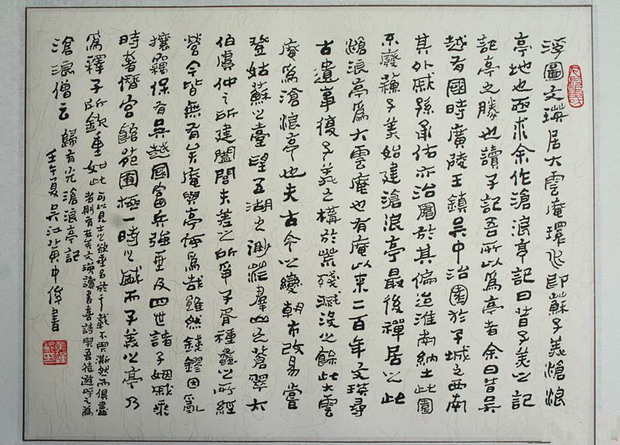 浮圖文瑛居大雲庵環水即蘇子美滄浪
亭地也亟求余作滄浪亭記曰昔子美之記
記亭之勝也請子記吾所以爲亭者余曰昔吳
越有國時廣陵王鎮吳中治園於子城之西南
其外戚孫承佑亦治園於其偏迨淮南納土此園
不廢蘇子美始建滄浪亭最後禪居之此
滄浪亭爲大雲庵也有庵以來二百年文瑛尋
古遺事復子美之構於荒殘滅沒之餘此大雲
庵爲滄浪亭也夫古今之變朝市改易嘗
登姑蘇之臺望五湖之渺茫羣山之蒼翠太
伯虞仲之所建闔閭夫差之所爭子胥種蠡之所經
營今皆無有矣庵與亭何爲哉雖然錢鏐因亂
攘竊保有吳越國富兵強垂及四世諸子姻戚乘
時奢僭宮館苑囿極一時之盛而子美之亭乃
爲釋子所欽重如此可以見士之欲垂名於千載不與澌然而俱盡
者則有在矣文瑛讀書喜詩與吾徒遊呼之爲
滄浪僧云 歸有光滄浪亭記
壬午夏吳江 中俊書